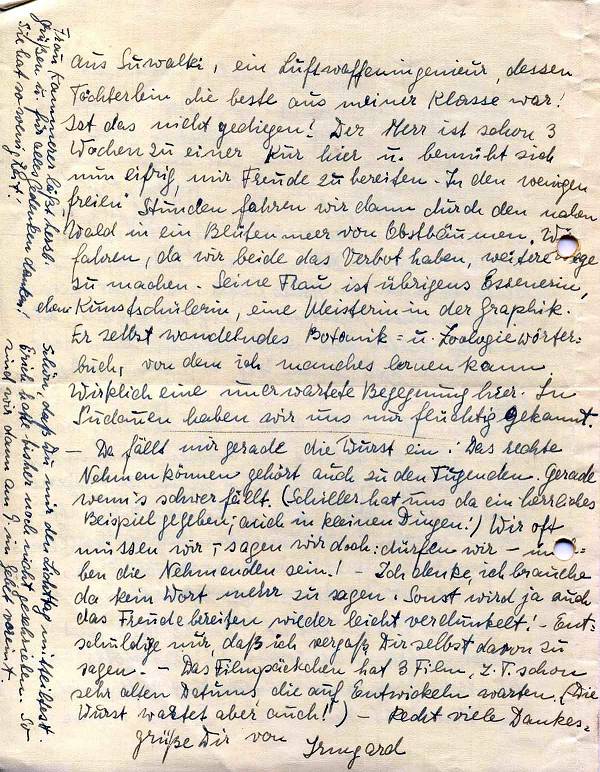 aus Suwalki, ein Luftwaffeningenieur, dessen
Töchterlein die beste aus meiner Klasse war!
Ist das nicht gediegen! Der Herr ist schon 3
Wochen zu einer Kur hier u. bemüht sich
nun eifrig, mir Freude zu bereiten. In den wenigen
freien Stunden fahren wir dann durch den nahen
Wald in ein Blütenmeer von Obstbäumen. Wir
fahren, da wir beide das Verbot haben, weitere Wege
zu machen. Seine Frau ist übrigens Essenerin,
ehem. Kunstschülerin, eine Meisterin in der Graphik.
Er selbst wandelndes Botanik- u. Zoologiewörter-
buch, von dem ich manches lernen kann.
Wirklich eine unerwartete Begegnung hier. In
Sudauen haben wir uns nur flüchtig gekannt.
- Da fällt mir gerade die Wurst ein! Das rechte
Nehmenkönnen gehört auch zu den Tugenden. Gerade
wenn's schwer fällt. (Schiller hat uns da ein herrliches
Beispiel gegeben; auch in kleinen Dingen!) Wie oft
müssen wir, - sagen wir doch: dürfen wir -
ben die Nehmenden sein! - Ich denke, ich brauche
da kein Wort mehr zu sagen. Sonst wird ja auch
das Freudebereiten wieder leicht verdunkelt! - Ent-
schuldige nur, daß ich vergaß, Dir selbst davon zu
sagen. - Das Filmpäckchen hat 3 Film, z.T. schon
sehr alten Datums, die auf Entwickeln warten. (Die
Wurst wartet aber auch!) - Recht viele Dankes-
grüße Dir von Irmgard
Frau Kammerer läßt herzl.
grüßen u. für alles Gedenken danken!
Sie hat so wenig Zeit!
Schön, daß Du mir den Todestag mitteiltest.
Erich hatte bisher noch nicht geschrieben. So
sind wir dann am 9. im Gebet vereint.